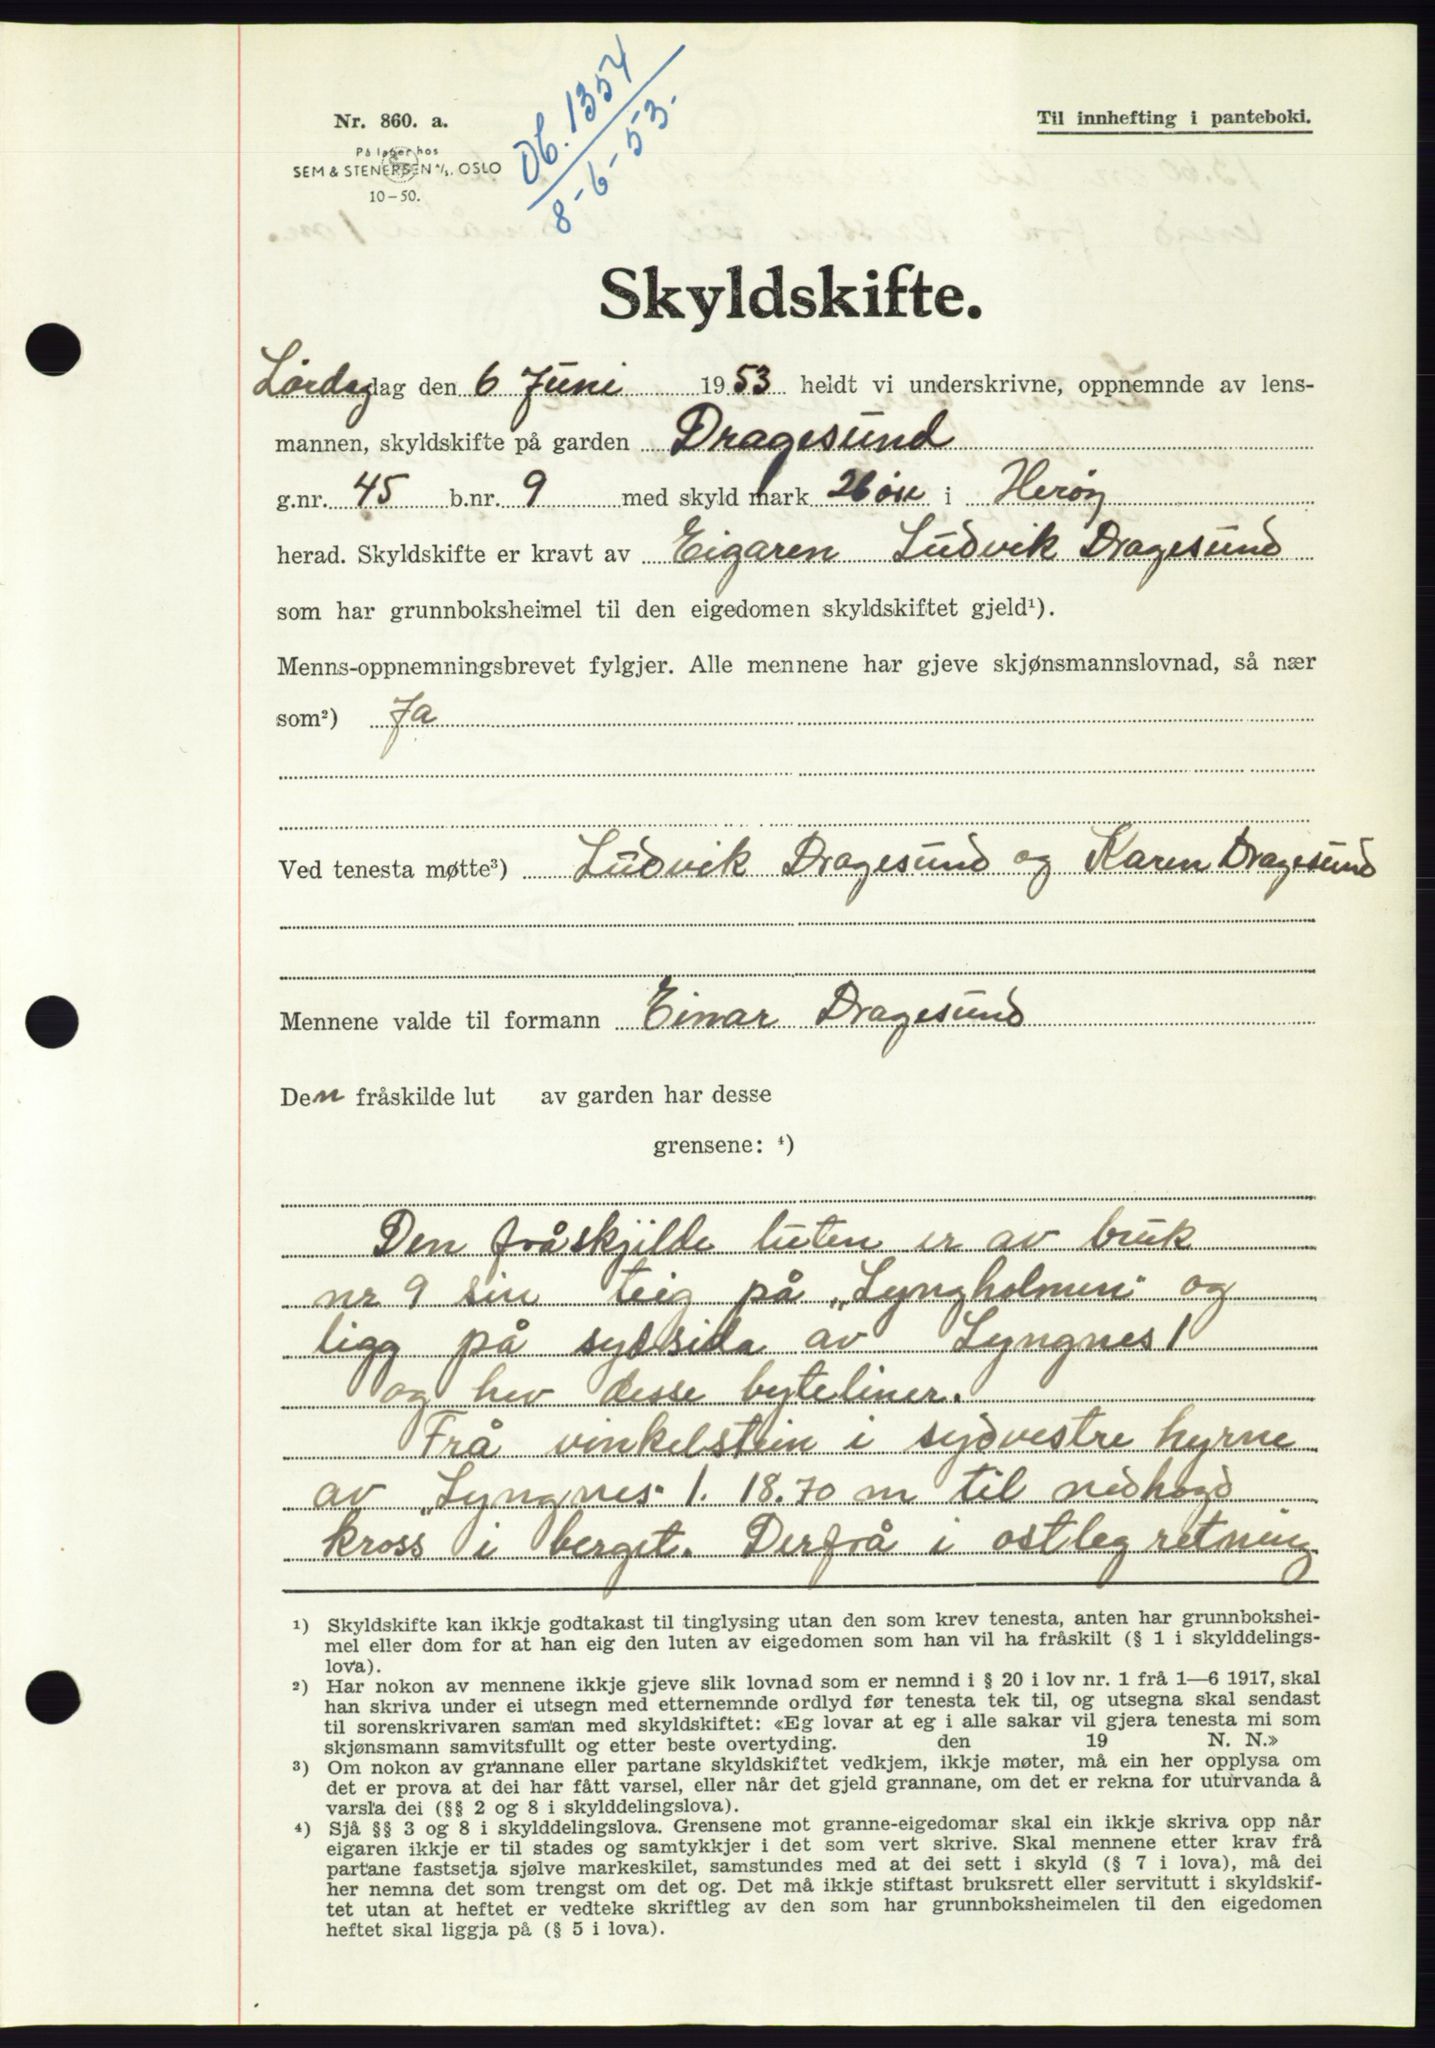 Nr. 860. a.
På lager hos
SEM & STENERSEN A/S, OSLO
10-50.
Db. 1354
8-6-53.
Til innhefting i panteboki.
Skyldskifte.
Lördagdag den 6 Juni 1953 heldt vi underskrivne, oppnemnde av lens-
mannen, skyldskifte på garden Dragesund
g.nr. 45 b.nr. 9 med skyld mark 26 öre i Heröy
herad. Skyldskifte er kravt av Eigaren Ludvik Dragesund
som har grunnboksheimel til den eigedomen skyldskiftet gjeld¹).
Menns-oppnemningsbrevet fylgjer. Alle mennene har gjeve skjønsmannslovnad, så nær
som²) Ja
Ved tenesta møtte³) Ludvik Dragesund og Karen Dragesund
Mennene valde til formann Einar Dragesund
Den fråskilde lut av garden har desse
grensene: ⁴)
Den fråskjilde luten er av bruk
nr 9 sin teig på „Lyngholmen" og
ligg på sydsida av Lyngnes 1
og hev desse byteliner.
Frå vinkelstein i sydvestre hyrne
av „Lyngnes" 1. 18.70 m til nedhogd
kross i berget. Derfrå i ostleg retning
¹) Skyldskifte kan ikkje godtakast til tinglysing utan den som krev tenesta, anten har grunnbokshei-
mel eller dom for at han eig den luten av eigedomen som han vil ha fråskilt (§ 1 i skylddelings-
lova).
²) Har nokon av mennene ikkje gjeve slik lovnad som er nemnd i § 20 i lov nr. 1 frå 1—6 1917, skal
han skriva under ei utsegn med etternemnde ordlyd før tenesta tek til, og utsegna skal sendast
til sorenskrivaren saman med skyldskiftet: «Eg lovar at eg i alle sakar vil gjera tenesta mi som
skjønsmann samvitsfullt og etter beste overtyding. den 19 N. N.»
³) Om nokon av grannane eller partane skyldskiftet vedkjem, ikkje møter, må ein her opplysa om
det er prova at dei har fått varsel, eller når det gjeld grannane, om det er rekna for uturvanda å
varsla dei (§§ 2 og 8 i skylddelingslova).
⁴) Sjå §§ 3 og 8 i skylddelingslova. Grensene mot granne-eigedomar skal ein ikkje skriva opp når
eigaren ikkje er til stades og samtykkjer i det som vert skrive. Skal mennene etter krav frå
partane fastsetja sjølve markeskilet, samstundes med at dei sett i skyld (§ 7 i lova), må dei
her nemna det som trengst om det og. Det må ikkje stiftast bruksrett eller servitutt i skyldskif-
tet utan at heftet er vedteke skriftleg av den som har grunnboksheimelen til den eigedomen
heftet skal liggja på (§ 5 i lova).